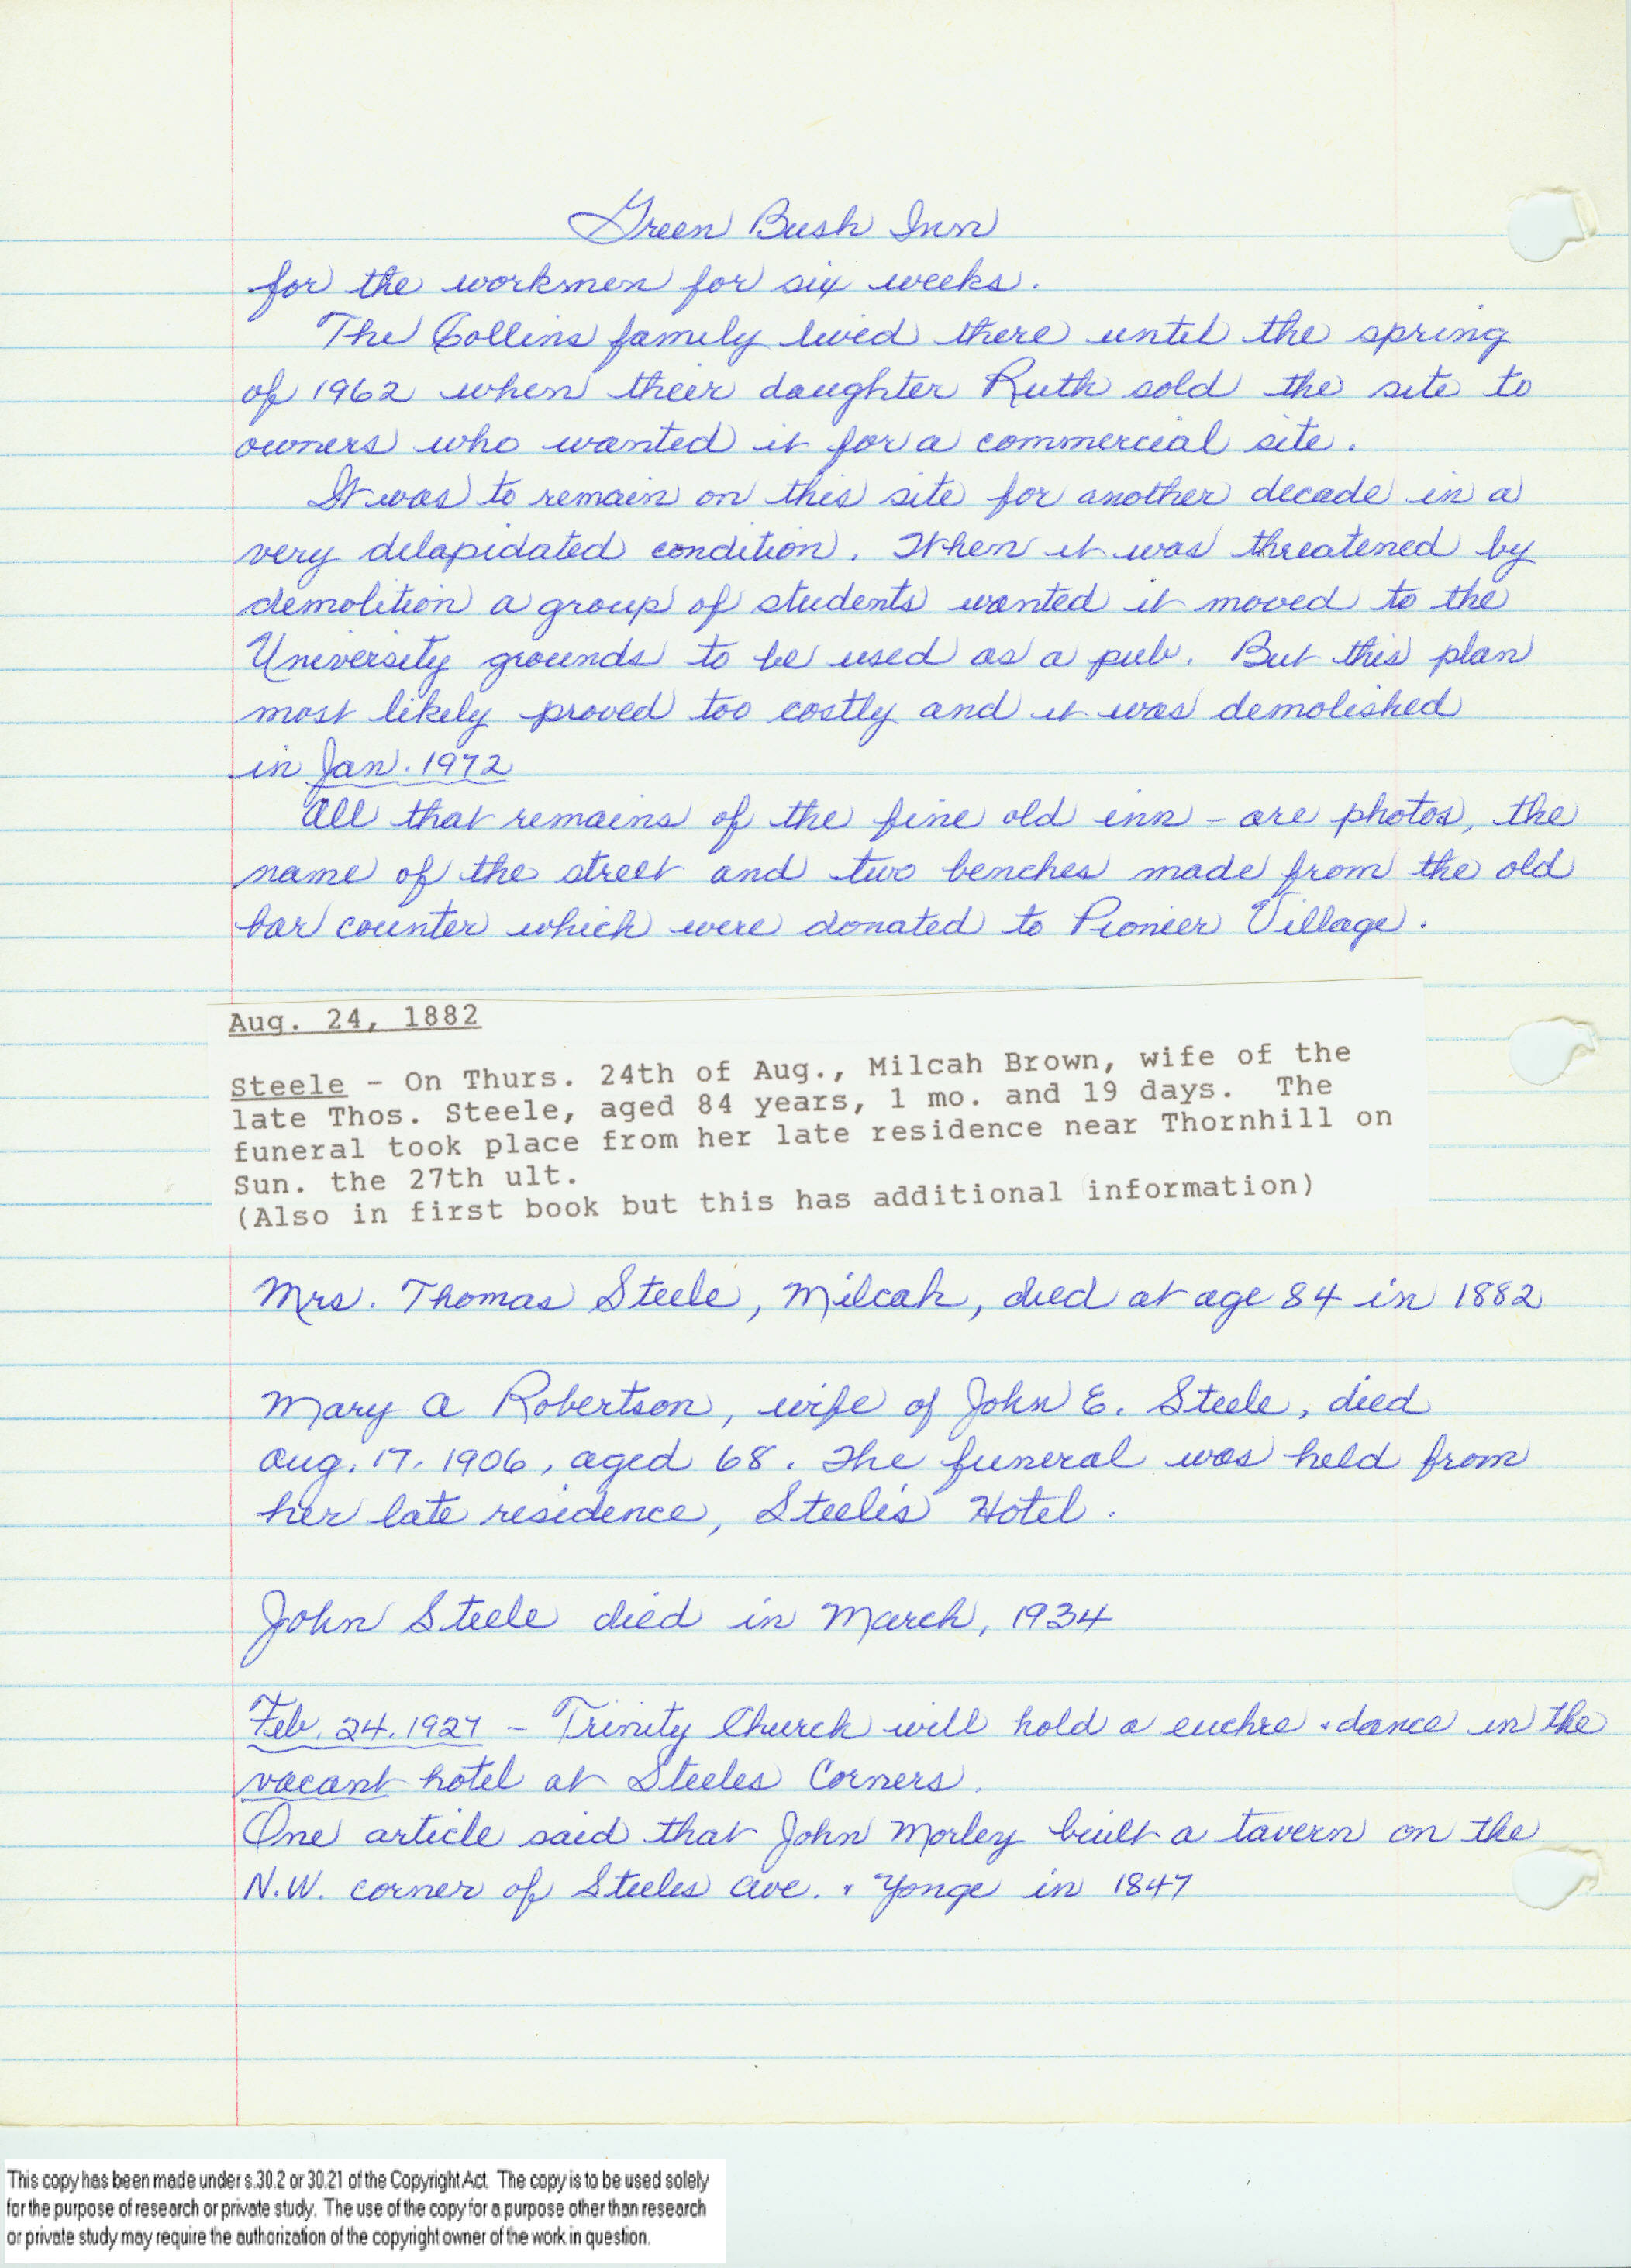 Green Bush Inn
for the workmen for six weeks.
The Collins family lived there until the spring
of 1962 when their daughter Ruth sold the site to
owners who wanted it for a commercial site.
It was to remain on this site for another decade in a
very delapidated condition. When it was threatened by
demolition a group of students wanted it moved to the
University grounds to be used as a pub. But this plan
most likely proved too costly and it was demolished
in Jan. 1972
All that remains of the fine old inn - are photos, the
name of the street and two benches made from the old
bar counter which were donated to Pioneer Village.
Aug. 24, 1882
Steele - On Thurs. 24th of Aug., Milcah Brown, wife of the
late Thos. Steele, aged 84 years, 1 mo. and 19 days. The
funeral took place from her late residence near Thornhill on
Sun. the 27th ult.
(Also in first book but this has additional information)
Mrs. Thomas Steele, Milcah, died at age 84 in 1882
Mary A Robertson, wife of John E. Steele, died
Aug. 17. 1906, aged 68. The funeral was held from
her late residence, Steele's Hotel.
John Steele died in March, 1934
Feb. 24. 1927 - Trinity Church will hold a euchre & dance in the
vacant hotel at Steeles Corners.
One article said that John Morley built a tavern on the
N.W. corner of Steeles Ave. & Yonge in 1847
This copy has been made under s.30.2 or 30.21 of the Copyright Act. The copy is to be used solely
for the purpose of research or private study. The use of the copy for a purpose other than research
or private study may require the authorization of the copyright owner of the work in question.